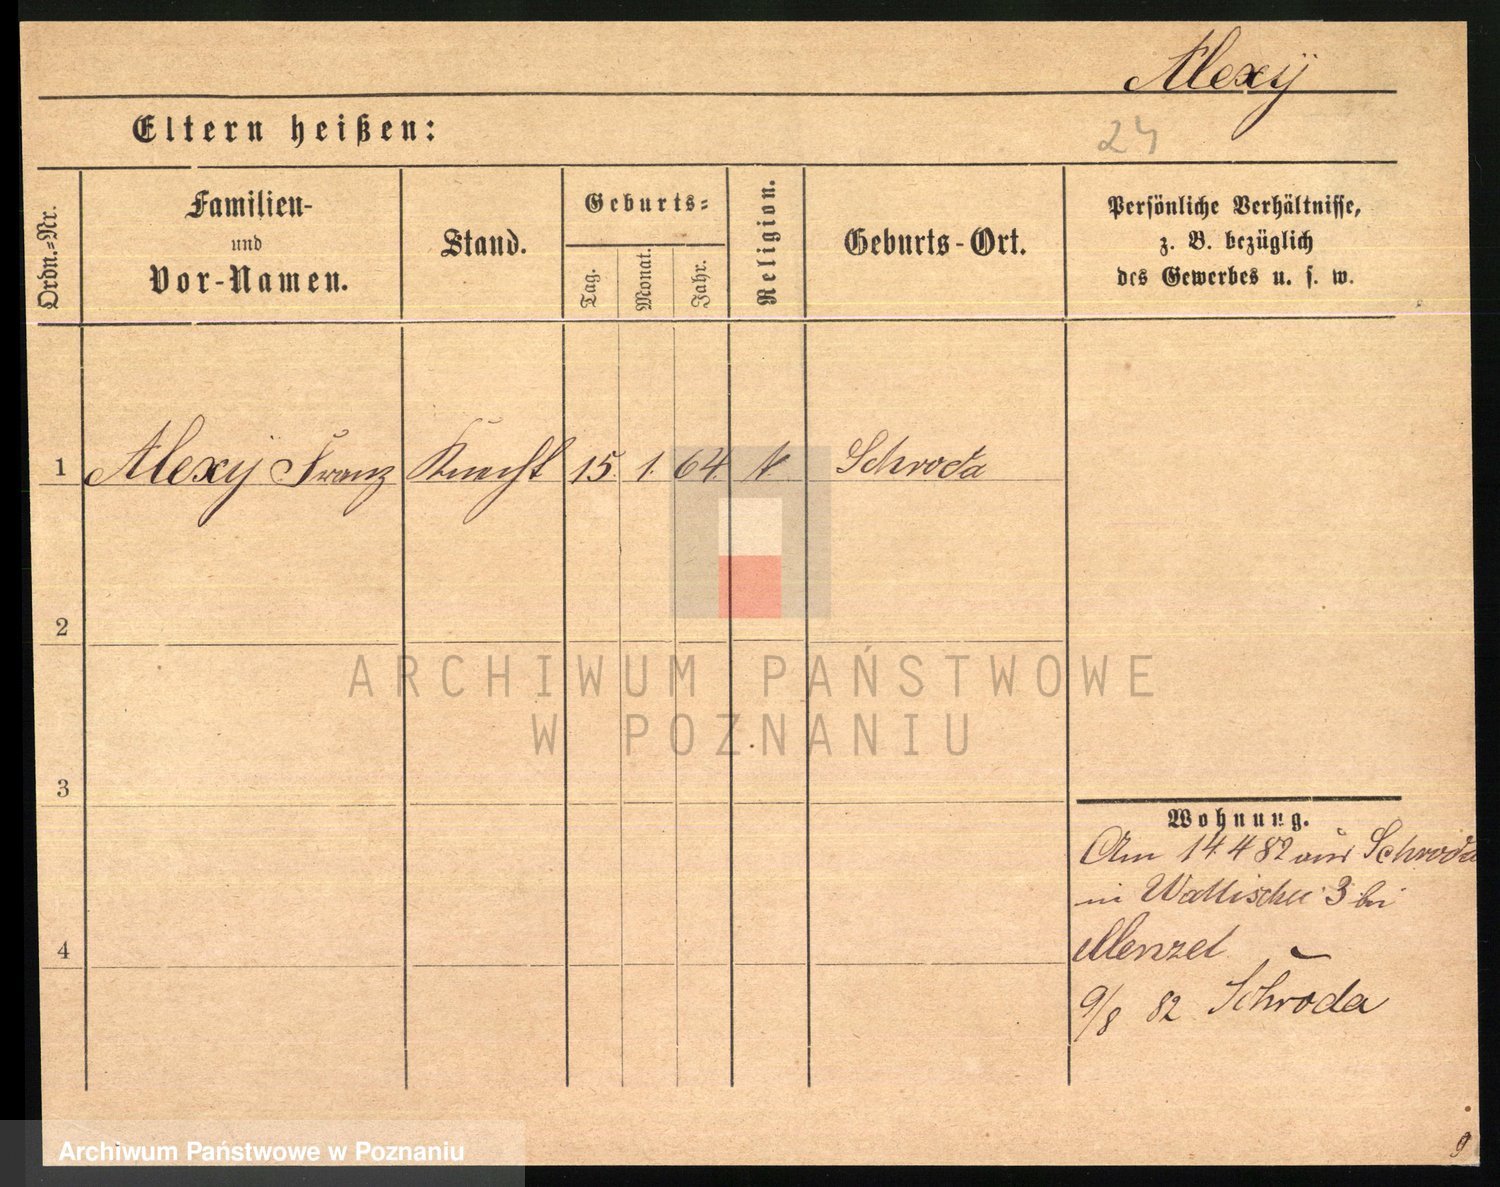 Alexÿ
Eltern heißen:
24
Ordn.=Nr.
Familien-
und
Vor-Namen.
Stand.
Geburts=
Tag.
Monat.
Jahr.
Religion.
Geburts-Ort.
Persönliche Verhältnisse,
z. B. bezüglich
des Gewerbes u. s. w.
1 Alexÿ Franz Knecht 15. 1. 64. Schroda
2
ARCHIWUM PAŃSTWOWE
W POZNANIU
3
Wohnung.
Am 14 4 82 aus Schroda
in Wallischei 3 bei
4
Menzel
9/8 82 Schroda
Archiwum Państwowe w Poznaniu
9